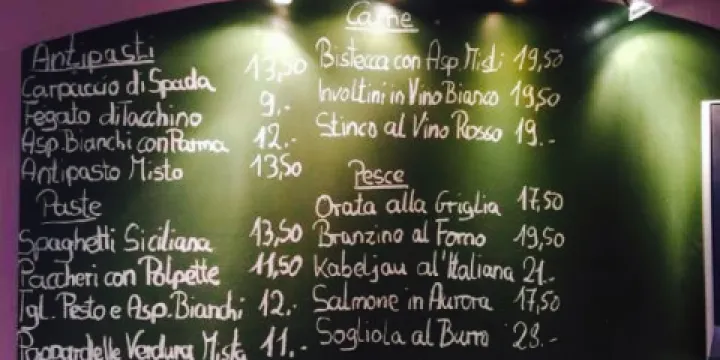 Antipasti
Carpaccio di Spada 13,50
Fegato di Tacchino 9.-
Asp. Bianchi con Parma 12.-
Antipasto Misto 13,50
Paste
Spaghetti Siciliana 13,50
Paccheri con Polpette 11,50
Tgl. Pesto e Asp. Bianchi 12.-
Pappardelle Verdura Mista 11.-
Carne
Bistecca con Asp. Misti 19,50
Involtini in Vino Bianco 19,50
Stinco al Vino Rosso 19.-
Pesce
Orata alla Griglia 17,50
Branzino al Forno 19,50
Kabeljau al'Italiana 21.-
Salmone in Aurora 17,50
Sogliola al Burro 23.-